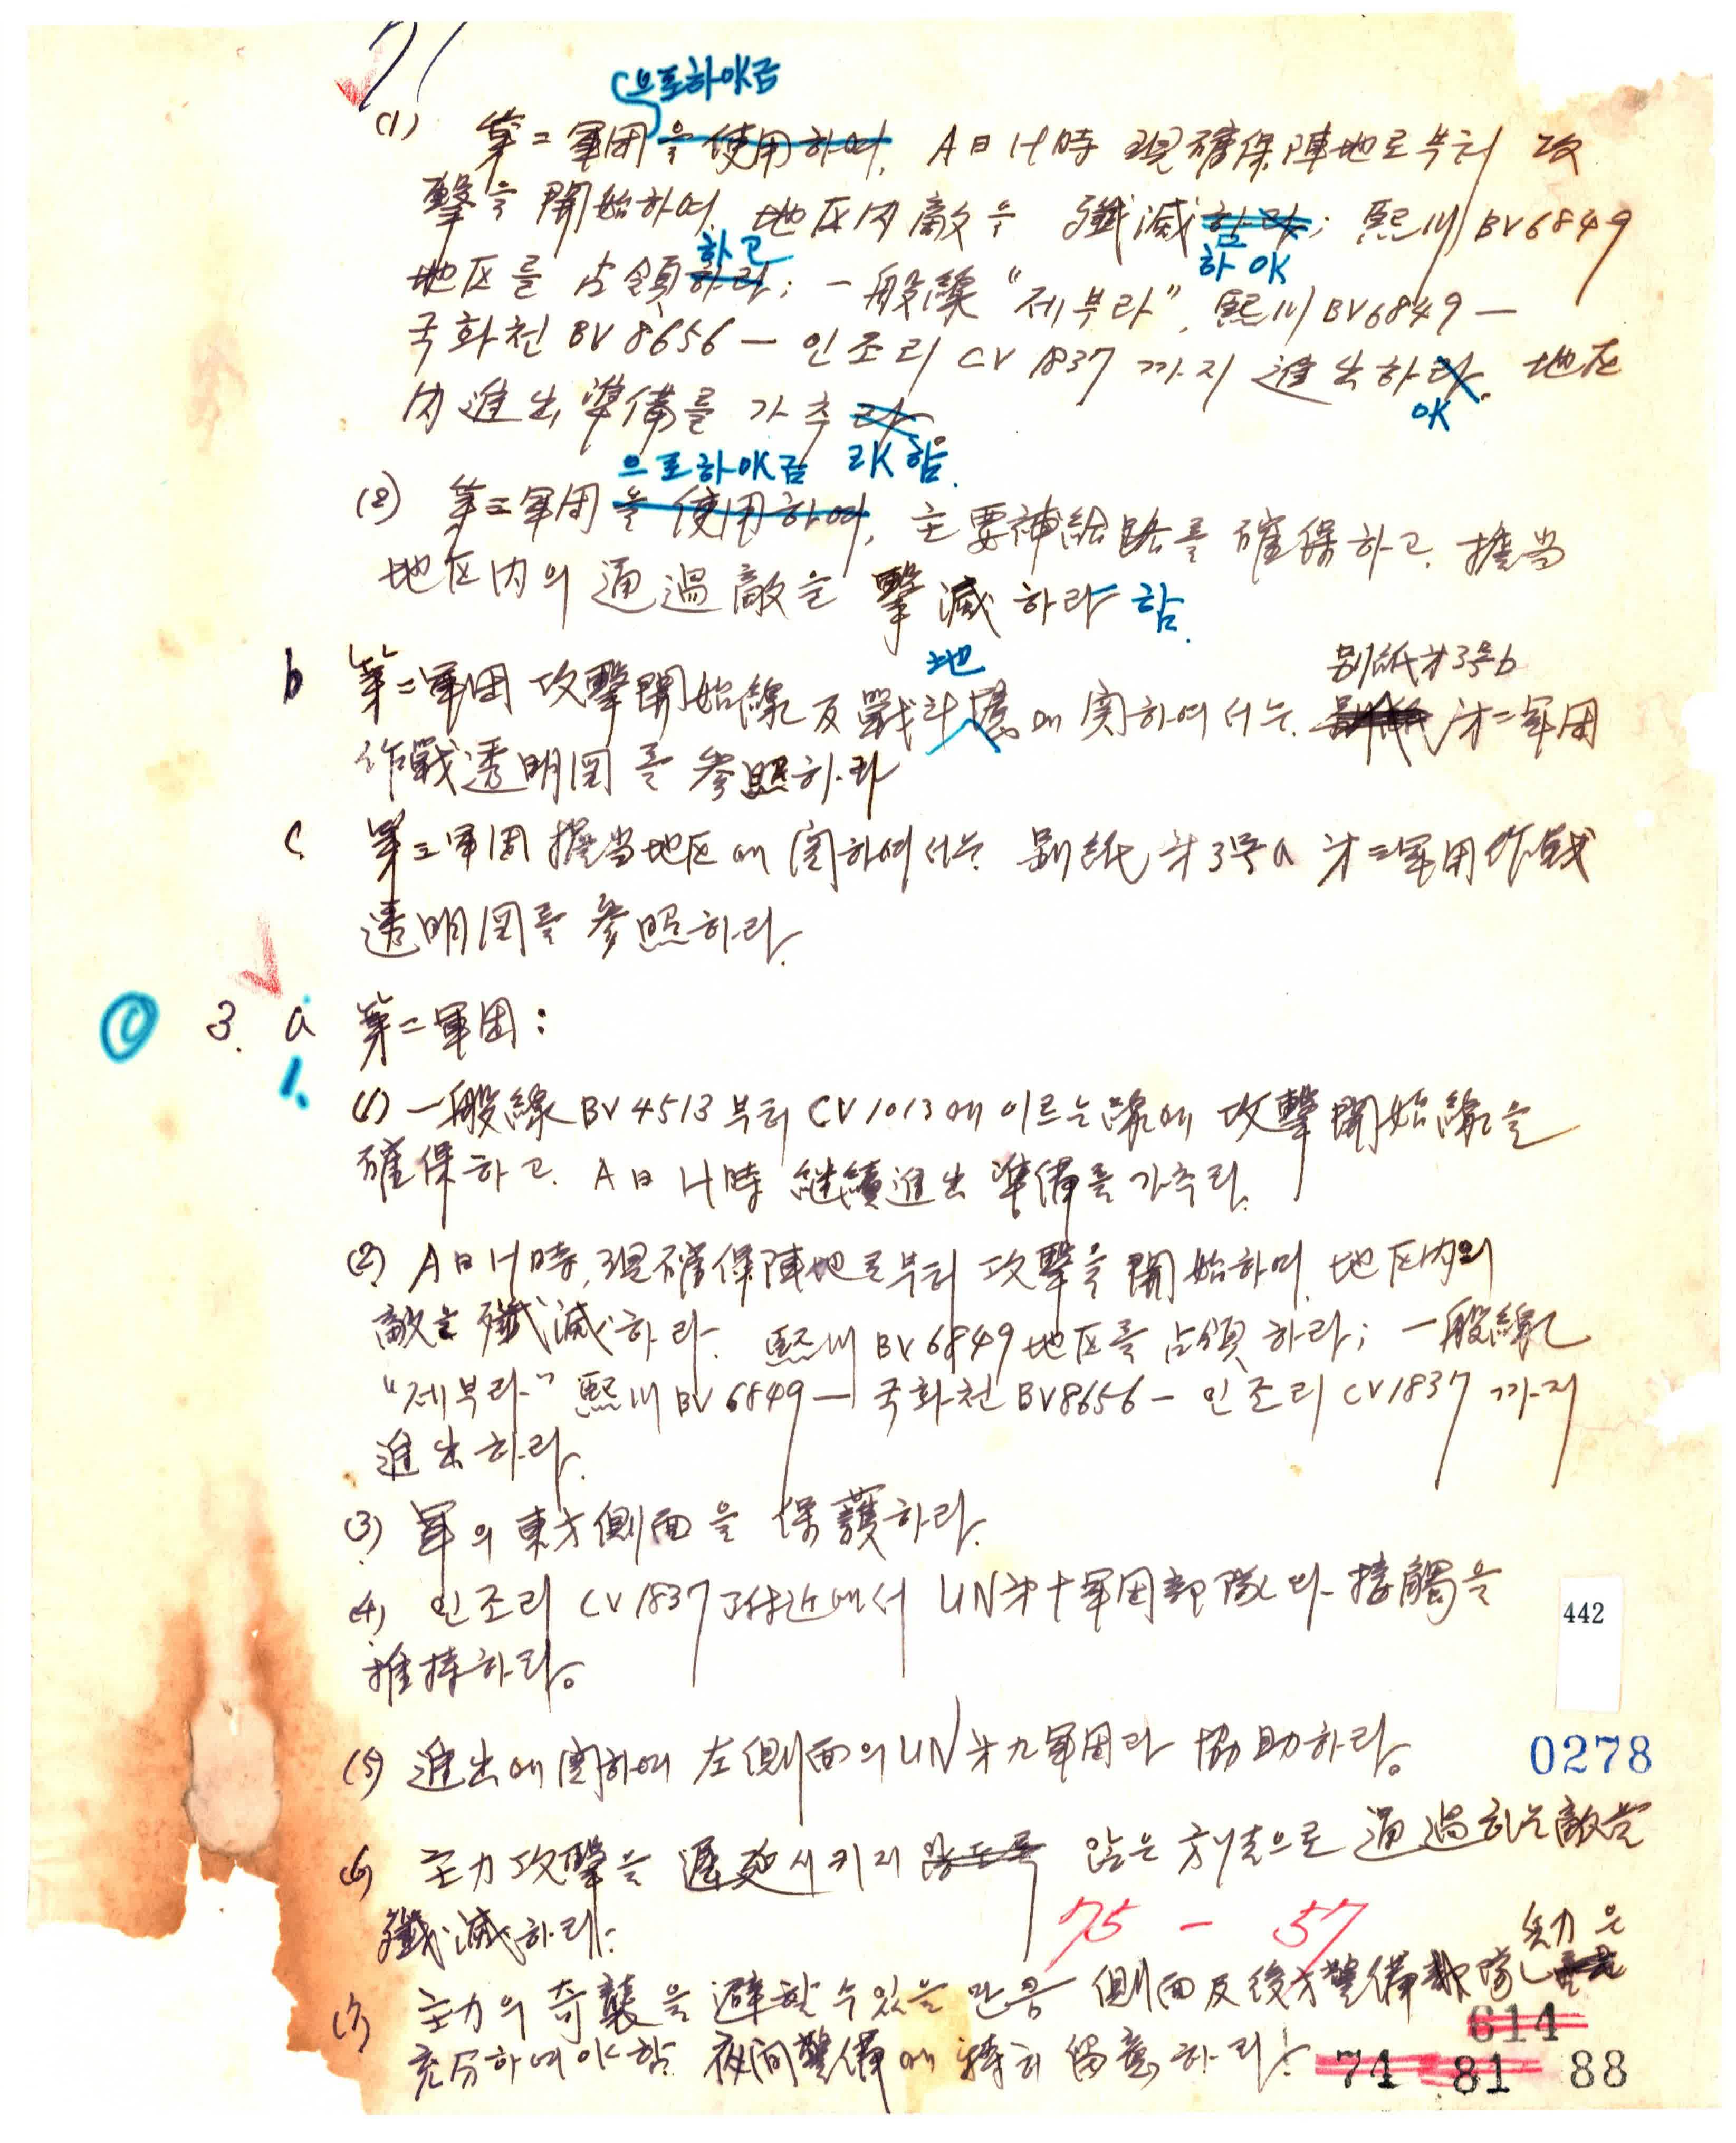 71
으로하야금
(1) 第二軍団을 使用하여, A日 H時 現確保陣地로부터 攻
擊을 開始하여, 地区内敵을 殲滅함라; 熙川 BV6849
하고 하야
地区를 占領하라; 一般線 "제부라", 熙川 BV6849 —
국화천 BV8656 — 인조리 CV1837 까지 進出하라. 地区
야
内進出準備를 가추라
으로하야금 라야 함.
(2) 第三軍団을 使用하여, 主要補給路를 確保하고. 擔当
地区内의 通過敵을 擊滅하라 함.
地 別紙才3号b
b 第二軍団 攻擊開始線 及 戰斗境에 関하여서는. 別紙 才二軍団
作戰透明図를 參照하라
c. 第三軍団 擔当地区에 関하여서는 別紙 才3号a 才三軍団作戰
透明図를 參照하라.
3. a 第二軍団:
1.
(1) 一般線 BV4513 부터 CV1013에 이르는 線에 攻擊開始線을
確保하고. A日 H時 継續進出 準備를 가추라.
(2) A日 H時, 現確保陣地로부터 攻擊을 開始하며, 地区内의
敵을 殲滅하라. 熙川 BV6849 地区를 占領하라; 一般線
"제부라" 熙川 BV6849 — 국화천 BV8656 — 인조리 CV1837 까지
進出하라.
(3) 軍의 東方側面을 保護하라.
(4) 인조리 CV1837 附近에서 UN才十軍団部隊와 接觸을
維持하라。
442
(5) 進出에 関하여 左側面의 UN才九軍団과 協助하라。
0278
(6) 主力攻擊을 遲延시키지 않도록 않은 方法으로 通過하는 敵을
殲滅하라.
75 - 57
兵力은
(7) 主力의 奇襲을 避할 수 있을 만큼 側面及後方警備部隊
614
充分하여야 함. 夜间警備에 特히 留意하라.
74 81 88